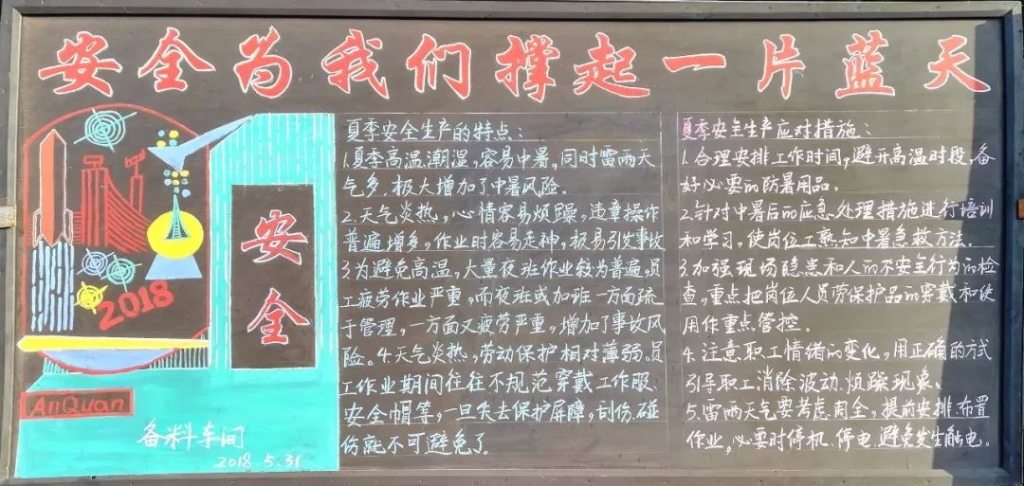 安全为我们撑起一片蓝天
安
全
2018
AnQuan
备料车间
2018.5.31
夏季安全生产的特点:
1.夏季高温潮湿,容易中暑,同时雷雨天
气多.极大增加了中暑风险.
2.天气炎热,心情容易烦躁,违章操作
普遍增多,作业时容易走神,极易引发事故
3为避免高温,大量夜班作业较为普遍,员
工疲劳作业严重,而夜班或加班一方面疏
于管理,一方面又疲劳严重,增加了事故风
险.4.天气炎热,劳动保护相对薄弱.员
工作业期间往往不规范穿戴工作服.
安全帽等,一旦失去保护屏障,刮伤.碰
伤就不可避免了.
夏季安全生产应对措施:
1.合理安排工作时间,避开高温时段.备
好必要的防暑用品.
2.针对中暑后的应急处理措施进行培训
和学习,使岗位工熟知中暑急救方法.
3.加强现场隐患和人的不安全行为的检
查,重点把岗位人员劳保护品的穿戴和使
用作重点管控.
4.注意职工情绪的变化,用正确的方式
引导职工消除波动.烦躁现象.
5.雷雨天气要考虑周全,提前安排.布置
作业,必要时停机.停电.避免发生触电.